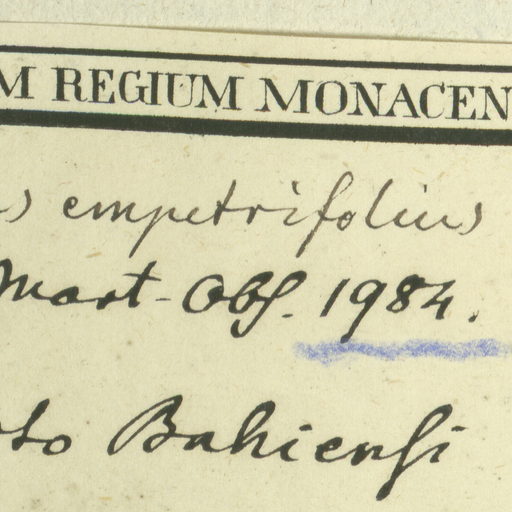 M REGIUM MONACEN
s empetrifolius
Mart. Obs. 1984.
oto Bahiensi